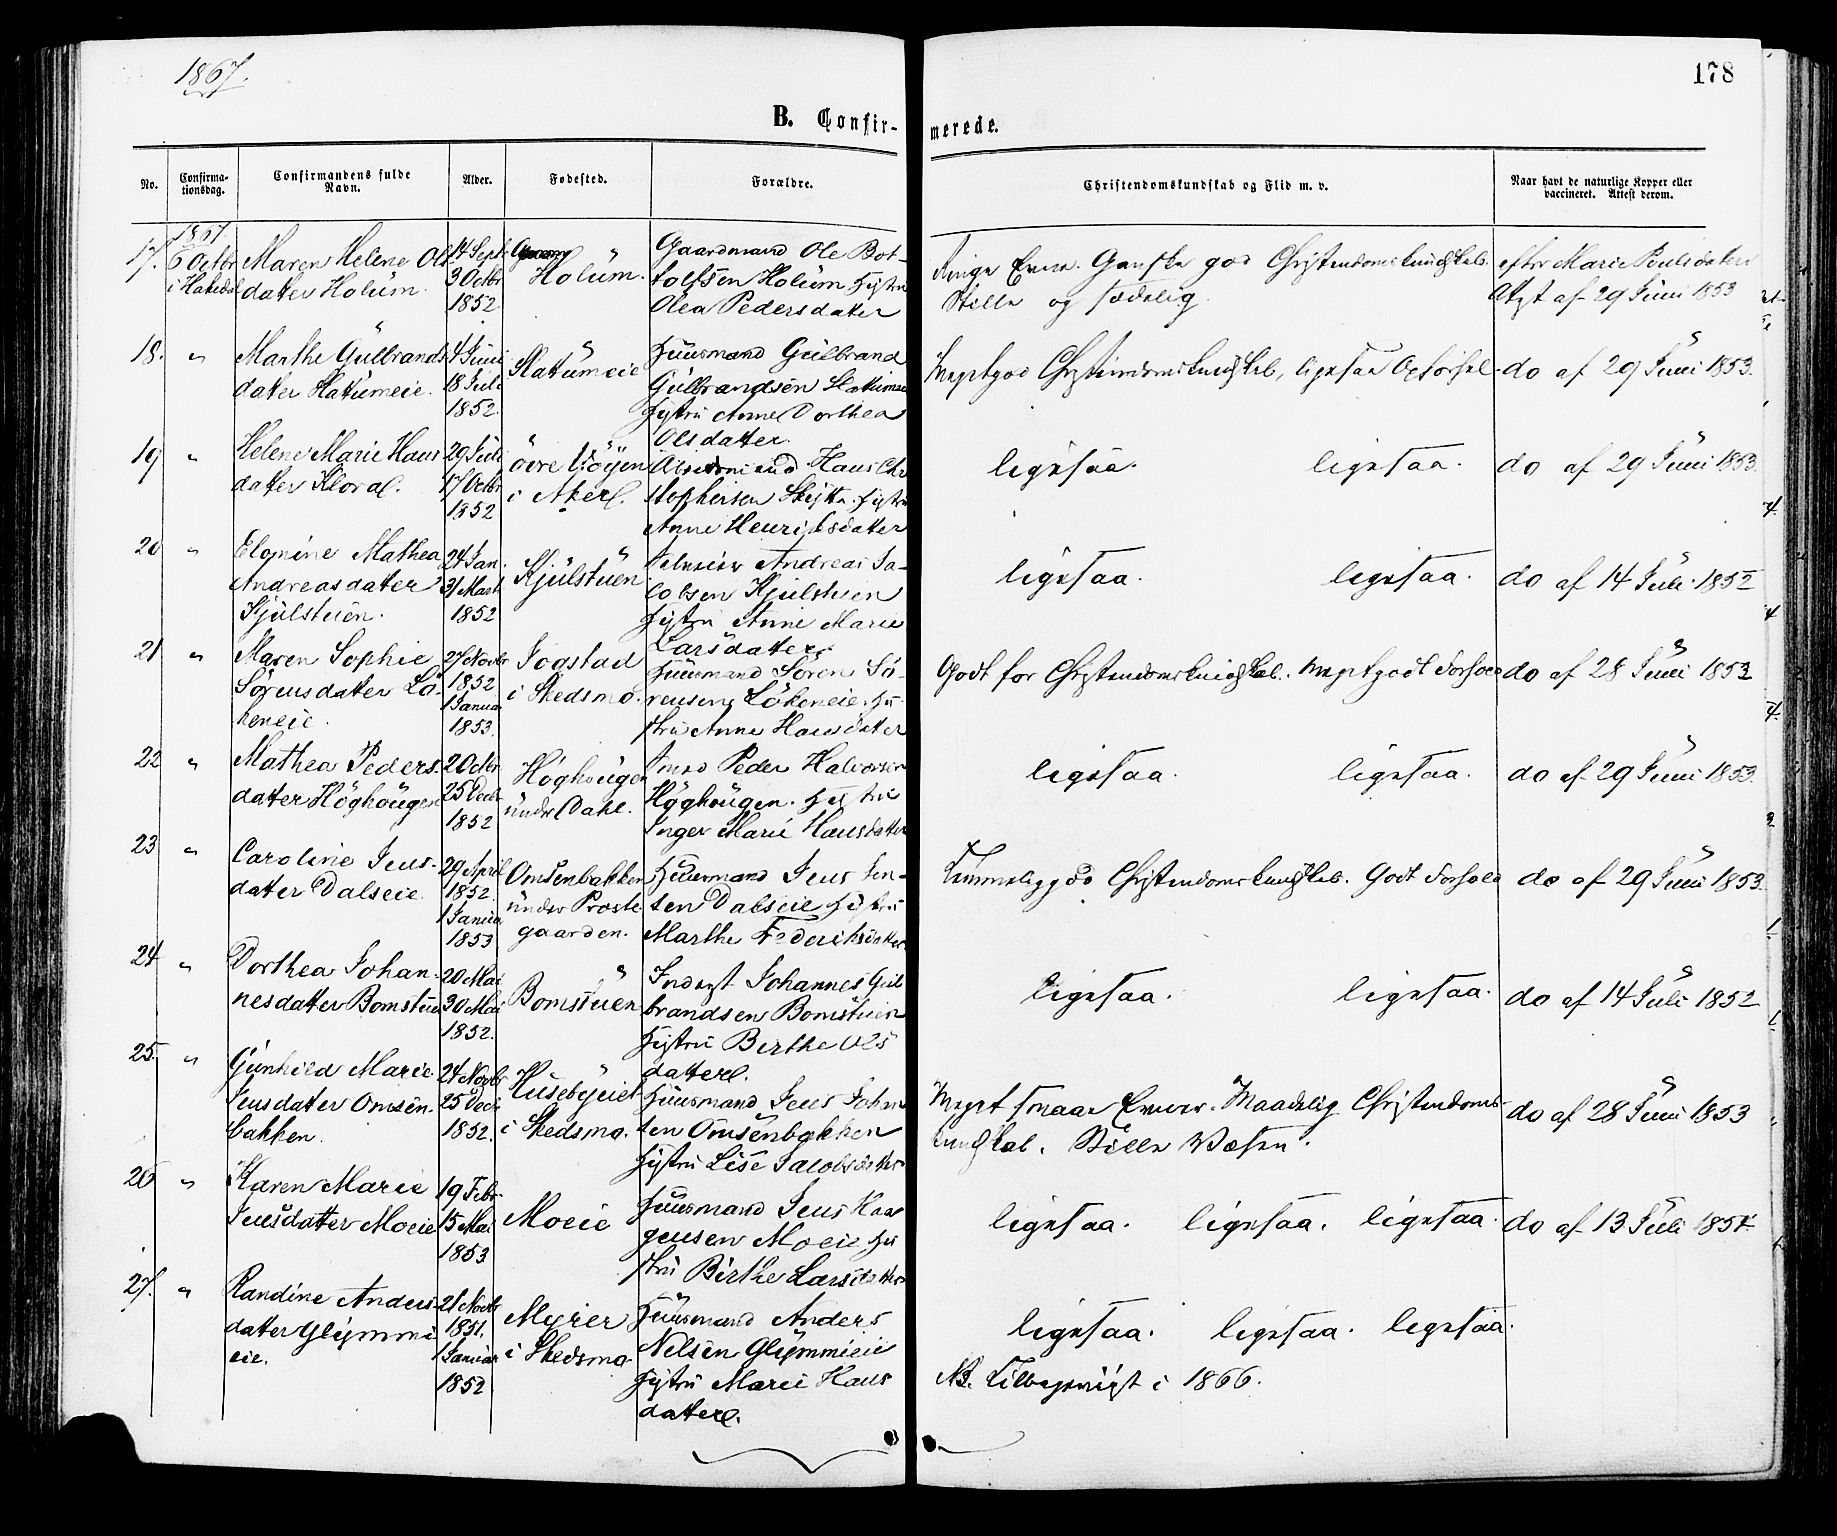 1867.
178
B. Confirmerede.
No.
Confirmationsdag.
Confirmandens fulde Navn.
Alder.
Fødested.
Forældre.
Christendomskundskab og Flid m. v.
Naar havt de naturlige Kopper eller vaccineret. Attest derom.
17. 1867. 6 Octbr i Hakedal
Maren Helene Ols
datter Holüm.
14 Sept.
3 Octbr
1852.
Holüm.
Gaardmand Ole Bot-
tolfsen Holüm Hustru
Olea Pedersdatter
Ringe Evner. Ganske god Christendomskundskab.
Stille og sædelig.
efter Marie Poulsdatters
Atst af 29 Juni 1853
18. "
Marthe Gülbrands
datter Statümeie.
4 Juni
18 Juli
1852.
Statümeie
Huusmand Gülbrand
Gülbrandsen
Hustru Anne Dorthea
Olsdatter.
Megetgod Christendomskundskab, ligesaa Opførsel.
do af 29 Juni 1853.
19 "
Helene Marie Hans
datter
29 Juli
17 Octbr
1852
övre
i Aker.
Hans Chr
stophersen Hustru
Anne Henriksdatter
ligesaa. ligesaa.
do af 29 Juni 1853.
20 "
Elgnine Mathea
Andreasdatter
Kjülstüen.
24 Jan.
31 Marts
1852
Kjülstüen
Andreas Ja-
cobsen Kjulstuen
Hustru Anne Marie
Larsdatter.
ligesaa. ligesaa.
do af 14 Juli 1852
21 "
Maren Sophie
Sörensdatter Lö-
keneie.
27 Novbr
1852
1 Januar
1853.
Jogstad
i Skedsmo.
Huusmand Sören Sö-
rensen Lökeneie. Hu-
stru Anne Hansdatter
Godt for Christendomskundskab. Megetgodt Forhold
do af 28 Juni 1853
22 "
Mathea Peders
datter Höghoügen
2 Octbr
25 Decbr
1852
Höghoügen
ünder Dahl.
Peder Halvorsen
Höghoügen. Hustru
Inger Marie Hansdatter
ligesaa. ligesaa.
do af 29 Juni 1853.
23 "
Caroline Jens-
datter Dalseie
29 April
1852.
1 Januar
1853
Omsenbakken
ünder Præste
gaarden.
Huusmand Jens Jen-
sen Dalseie Hustru
Marthe Frederiksdatter
Temmeliggod Christendomskundskab. Godt Forhold
do af 29 Juni 1853.
24 "
Dorthea Johan-
nesdatter Bomstüen
20 Mai
30 Mai
1852.
Bomstüen
Inderst Johannes Gul
brandsen Bomstüen
Hustru Berthe Ols
datter.
ligesaa. ligesaa.
do af 14 Juli 1852
25. "
Günhild Marie
Jensdatter Omsen-
bakken.
24 Novbr
25 Decb.
1852.
Husebyeiet
i Skedsmo.
Huusmand Jens Johan
sen Omsenbakken
Hustru Lise Jacobsdatter
Meget smaae Evner. Maadelig Christendoms-
kundskab. Stille Væsen.
do af 28 Juni 1853
26 "
Karen Marie
Jensdatter Moeie
19 Febr.
15 Mai
1853
Moeie
Huusmand Jens Haa
gensen Moeie Hu
stru Birthe Larsdatter
ligesaa. ligesaa. ligesaa.
do af 13 Juli 1854.
27. "
Randine Anders-
datter Glymmi
eie.
21 Novbr
1851.
1 Januar
1852
Myrer
i Skedsmo.
Huusmand Anders
Nilsen Glymmieie
Hustru Marie Hans
datter.
ligesaa. ligesaa. ligesaa.
NB. Tilbageviist i 1866.